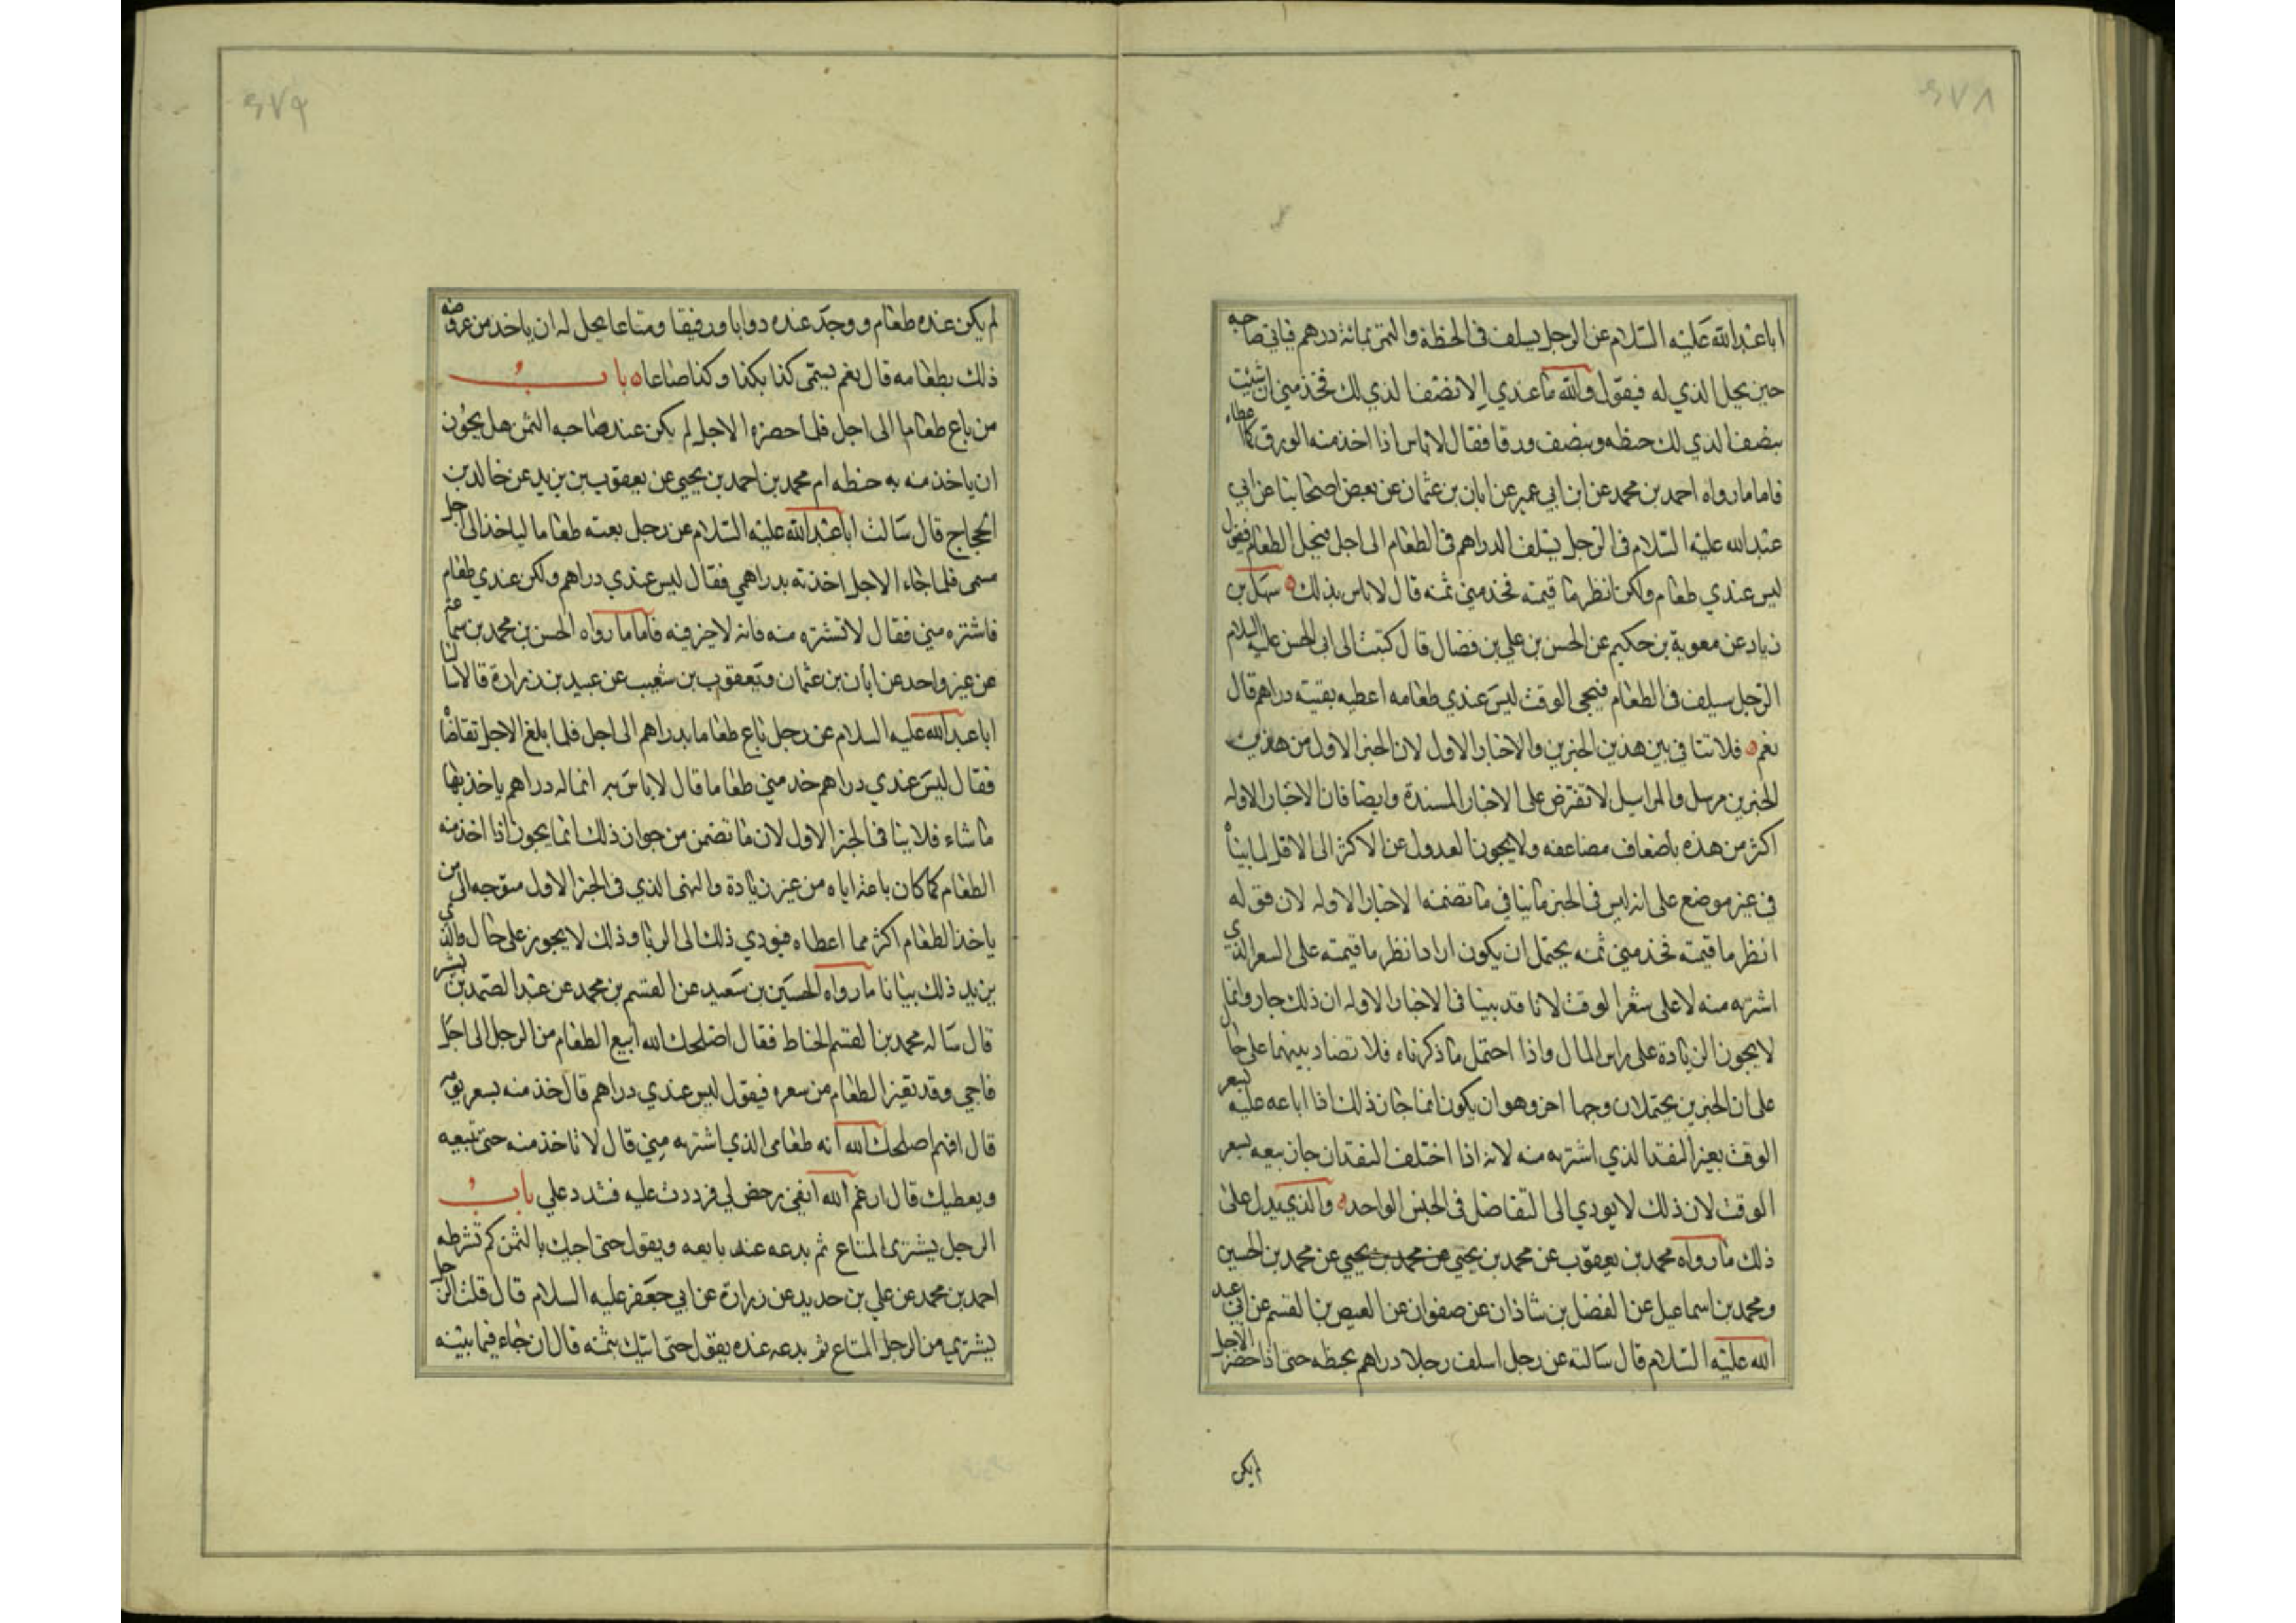 ۶۷۸
ابا عبدالله عليه السلام عن الرجل يسلف في الحنطة والتمر بمائة درهم فياتي صاحبه
حين يحل الذي له فيقول والله ما عندي الا نصف الذي لك فخذ مني ان شيت
بنصف الذي لك حنطه وبنصف ورقا فقال لا باس اذا اخذ منه الورق كما اعطاه
فاما ما رواه احمد بن محمد عن ابن ابي عمير عن ابان بن عثمان عن بعض اصحابنا عن ابي
عبدالله عليه السلام في الرجل يسلف الدراهم في الطعام الى اجل فيحل الطعام فيقول
ليس عندي طعام ولكن انظر ما قيمته فخذ مني ثمنه قال لا باس بذلك ه سهل بن
زياد عن معوية بن حكيم عن الحسن بن علي بن فضال قال كتبت الى ابي الحسن عليه السلام
الرجل يسلف في الطعام فيجئ الوقت ليس عندي طعامه اعطيه بقيته دراهم قال
نعم ه فلا تنافي بين هذين الخبرين والاخبار الاول لان الخبر الاول من هذين
الخبرين مرسل والمراسيل لا تعترض على الاخبار المسندة وايضا فان الاخبار الاوله
اكثر من هذه باضعاف مضاعفه ولا يجوز العدول عن الاكثر الى الاقل لما بيناه
في غير موضع على انه ليس في الخبر ما ينافي ما تضمنه الاخبار الاوله لان قوله
انظر ما قيمته فخذ مني ثمنه يحتمل ان يكون اراد انظر ما قيمته على السعر الذي
اشتريه منه لا على سعر الوقت لانا قد بينا في الاخبار الاوله ان ذلك جاز وانما
لا يجوز الزيادة على راس المال واذا احتمل ما ذكرناه فلا تضاد بينهما على حال
على ان الخبرين يحتملان وجها اخر وهو ان يكون انما جاز ذلك اذا اباعه عليه بسعر
الوقت بغير النقد الذي اشتريه منه لانه اذا اختلف النقدان جاز بيعه بسعر
الوقت لان ذلك لا يودي الى التفاضل في الجنس الواحد ه والذي يدل على
ذلك ما رواه محمد بن يعقوب عن محمد بن يحيى عن محمد بن يحيى عن محمد بن الحسين
ومحمد بن اسماعيل عن الفضل بن شاذان عن صفوان عن العيص بن القسم عن ابي عبد
الله عليه السلام قال سالته عن رجل اسلف رجلا دراهم بحنطه حتى اذا حضر الاجل
لم يكن
۶۷۹
لم يكن عنده طعام ووجد عنده دوابا ورفيقا ومتاعا يحل له ان ياخذ من عروضه
ذلك بطعامه قال نعم يسمى كذا بكذا وكذا صاعا ه باب
من باع طعاما الى اجل فلما حضره الاجل لم يكن عند صاحبه الثمن هل يجوز
ان ياخذ منه به حنطه ام محمد بن احمد بن يحيى عن يعقوب بن يزيد عن خالد بن
الحجاج قال سالت ابا عبدالله عليه السلام عن رجل بعته طعاما لياخذ الى اجل
مسمى فلما جاء الاجل اخذته بدراهمي فقال ليس عندي دراهم ولكن عندي طعام
فاشتره مني فقال لا تشتره منه فانه لا خير فيه فاما ما رواه الحسن بن محمد بن سماعه
عن غير واحد عن ابان بن عثمان ويعقوب بن شعيب عن عبيد بن زرارة قالا سالنا
ابا عبدالله عليه السلام عن رجل باع طعاما بدراهم الى اجل فلما بلغ الاجل تقاضاه
فقال ليس عندي دراهم خد مني طعاما قال لا باس به انما له دراهم ياخذ بها
ما شاء فلا ينافي الخبر الاول لان ما تضمن من جواز ذلك انما يجوز اذا اخذ منه
الطعام كما كان باعه اياه من غير زيادة والنهى الذي في الخبر الاول متوجه الى من
ياخذ الطعام اكثر مما اعطاه فيودي ذلك الى الربا وذلك لا يجوز على حال والذي
يزيد ذلك بيانا ما رواه الحسين بن سعيد عن القسم بن محمد عن عبد الصمد بن بشر
قال ساله محمد بن القسم الحناط فقال اصلحك الله ابيع الطعام من الرجل الى اجل
فاجي وقد تغير الطعام من سعره فيقول ليس عندي دراهم قال خذ منه بسعر يومه
قال افهم اصلحك الله انه طعامي الذي اشتريه مني قال لا تاخذ منه حتى تبيعه
ويعطيك قال ارغم الله انفي رخص لي فرددت عليه فشدد علي باب
الرجل يشترى المتاع ثم يدعه عند بايعه ويقول حتى اجيك بالثمن كم تشرطه
احمد بن محمد عن علي بن حديد عن زرارة عن ابي جعفر عليه السلام قال قلت الرجل
يشتري من الرجل المتاع ثم يدعه عنده يقول حتى اتيك بثمنه قال ان جاء فيما بينه